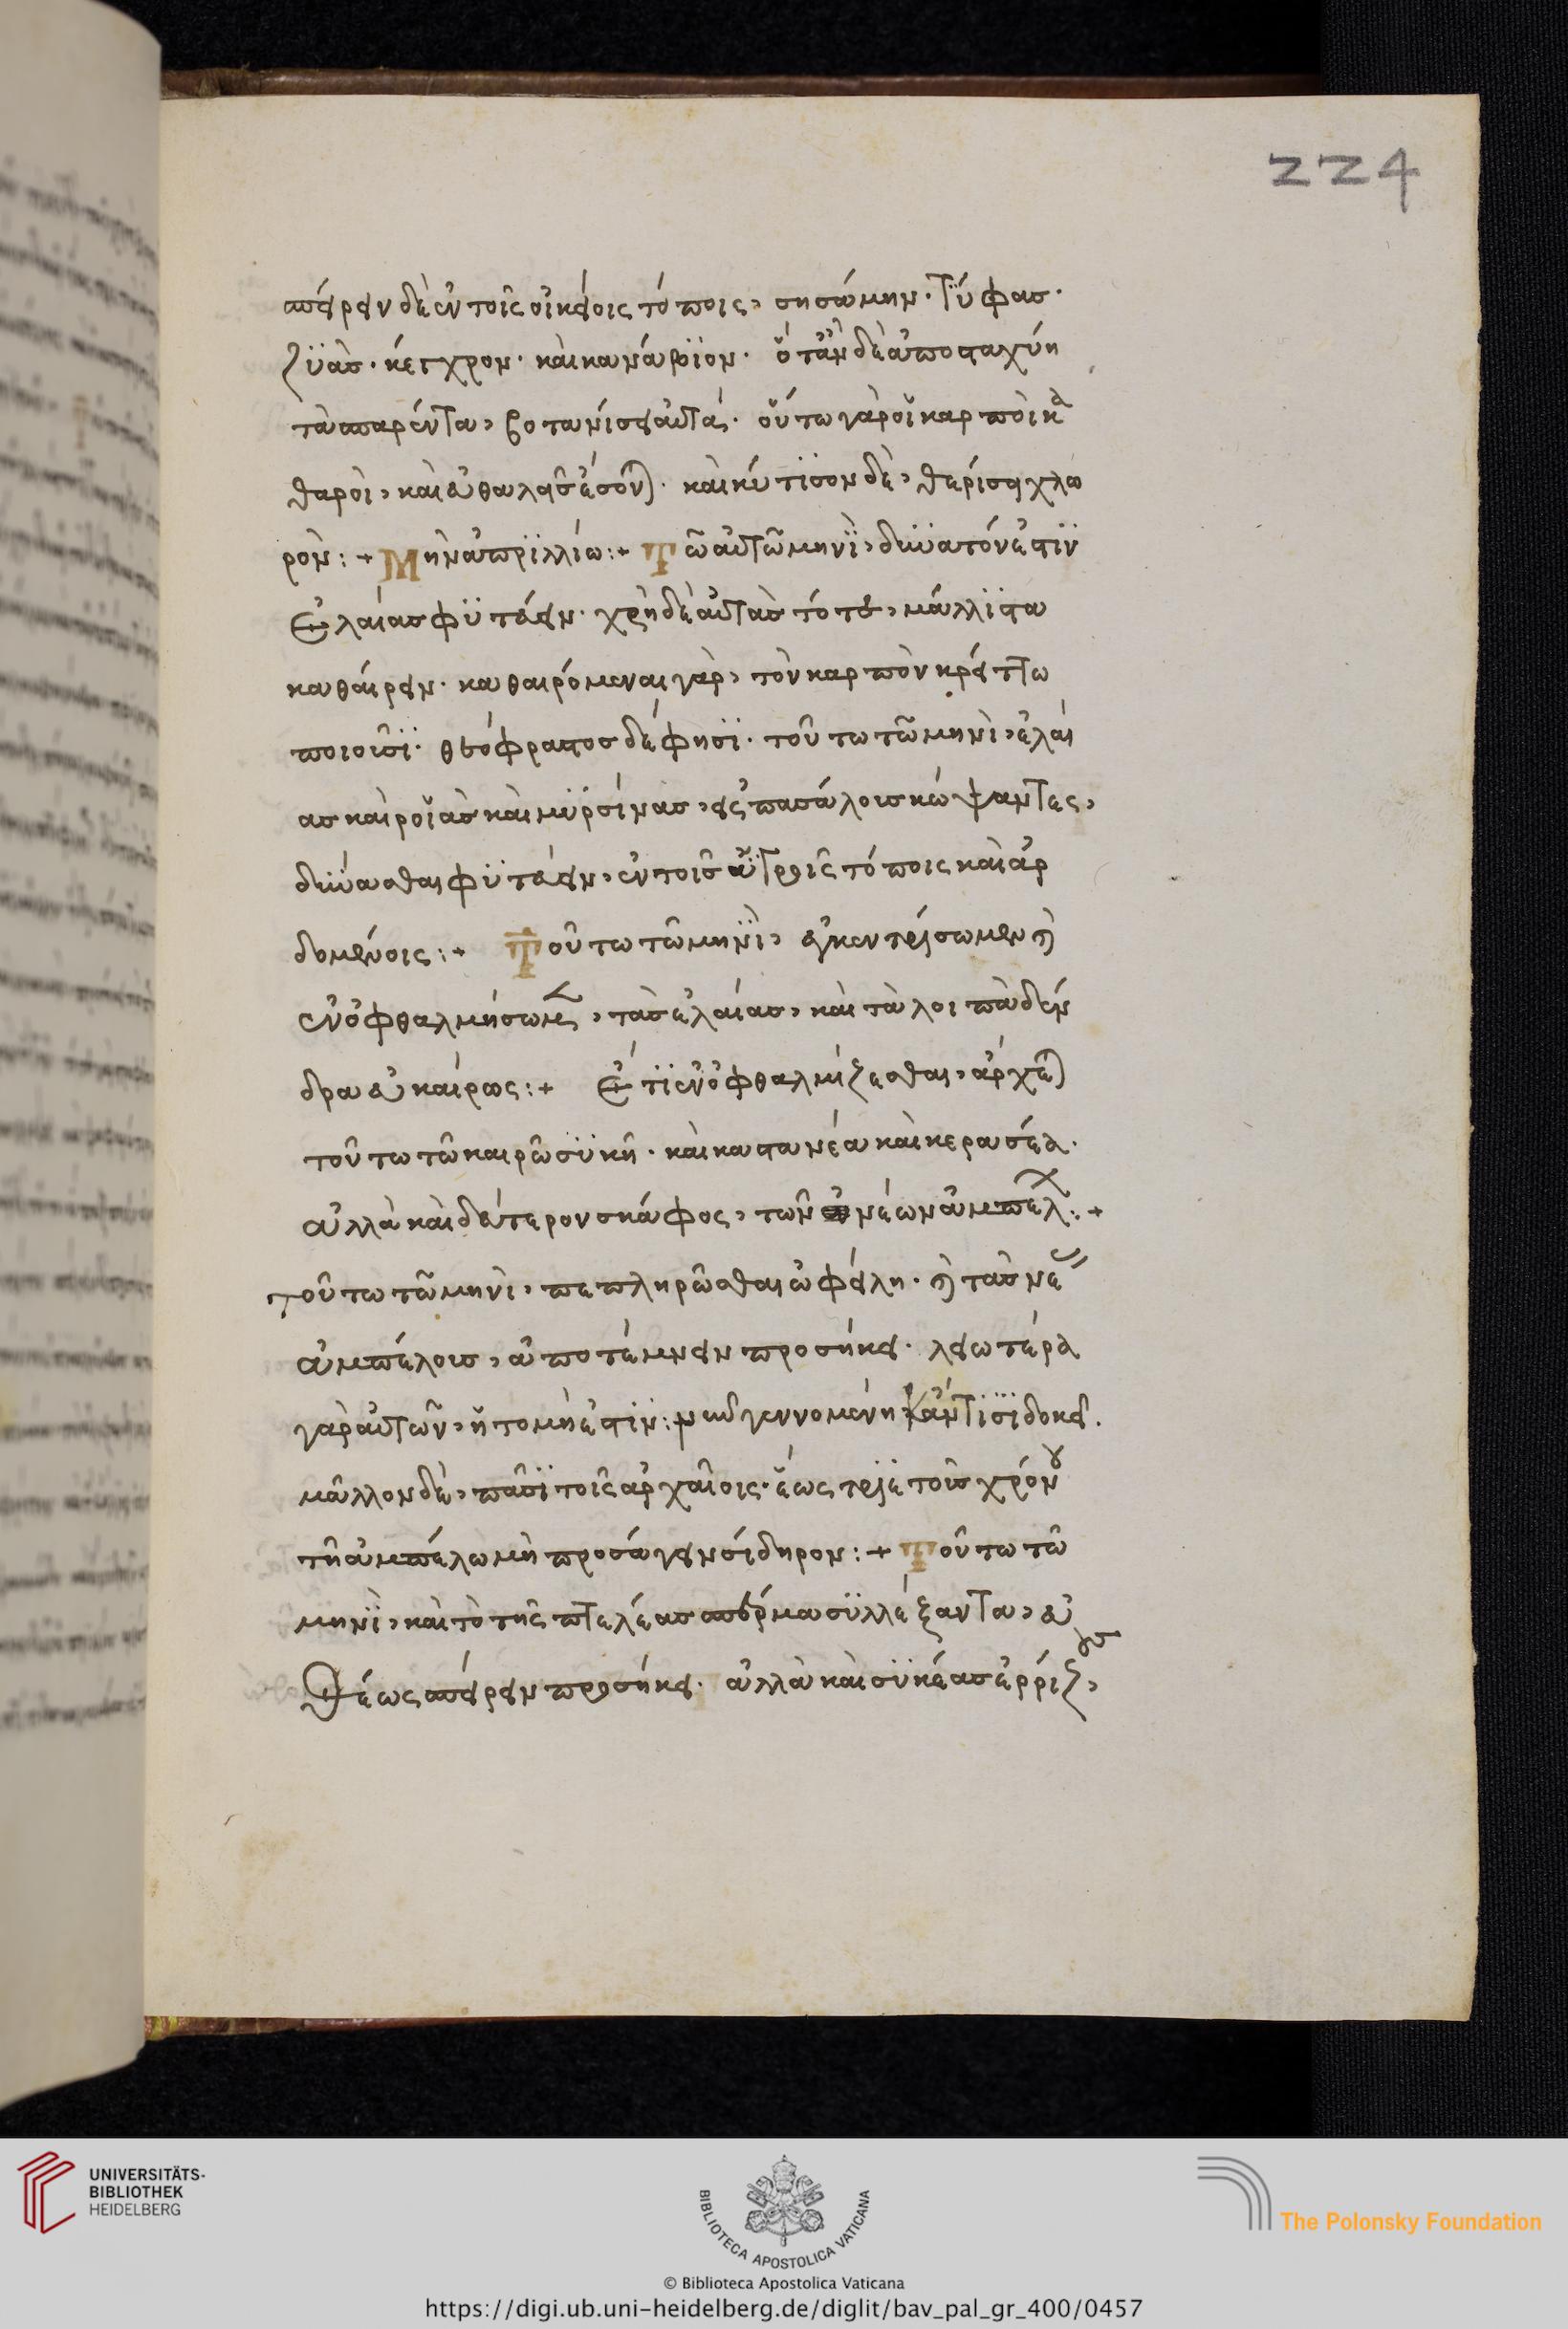 224
σπείρειν δὲ ἐν τοῖς οἰκείοις τόποις, σησάμην. τύφας.
ζϋὰς. κέγχρον. καὶ κανάβϊον. ὅτἂν δὲ ἀποσταχύη
τὰ σπαρέντα, βοτανίσει αὐτά. οὕτω γὰρ οἵ καρποὶ κα
θαροὶ, καὶ εὐθαλεῖς ἔσονται. καὶ κύτϊσον δὲ, θερίσαι χλω
ρόν :+ Μὴν ἀπρϊλλίω :+ Τῶ αὐτῶ μηνῒ, δυνατόν ἐστϊν
ἐλαίας φϋτεύειν. χρὴ δὲ αὐτὰς τότε, μάλλϊστα
καθαίρειν. καθαιρόμεναι γὰρ, τὸν καρπὸν κρείττω
ποιοῦσϊ. θεόφραστος δέ φησϊ. τούτω τῶ μηνὶ, ἐλαί
ας καὶ ροϊὰς καὶ μϋρσίνας, εἰς πασάλους κόψαντες,
δύνασθαι φϋτεύειν, ἐν τοῖς ἀΰδροις τόποις καὶ ἀρ
δομένοις :+ Τούτω τῶ μηνῒ, ἐγκεντρίσωμεν καὶ
ἐνοφθαλμήσωμεν, τὰς ἐλαίας, καὶ τὰ λοιπὰ δέν
δρα εὐκαίρως :+ Ἔτϊ ἐνοφθαλμίζεσθαι, ἄρχεται
τούτω τῶ καιρῶ σϋκῆ. καὶ καστανέα καὶ κερασέα.
ἀλλὰ καὶ δεύτερον σκάφος, τῶν νέων ἀμπέλων :+
τούτω τῶ μηνὶ, πεπληρῶσθαι ὠφείλη. καὶ τὰς νέας
ἀμπέλους, ἀποτέμνειν προσήκει. λειωτέρα
γὰρ αὐτῶν, ἥ τομή ἐστϊν : νῦν γεννομένη κἄν τϊσῒ δοκεῖ.
μᾶλλον δὲ, πᾶσϊ τοῖς ἀρχαίοις. ἕως τριετοῦς χρόνου
τῆ ἀμπέλω μὴ προσάγειν σίδηρον :+ Τούτω τῶ
μηνῒ, καὶ τὸ τῆς πτελέας σπέρμα σϋλλέξαντα, εὐ
θέως σπείρειν προσήκει. ἀλλὰ καὶ σϋκέας ἐρρίζους,
UNIVERSITÄTS-
BIBLIOTHEK
HEIDELBERG
BIBLIOTECA APOSTOLICA VATICANA
The Polonsky Foundation
© Biblioteca Apostolica Vaticana
https://digi.ub.uni-heidelberg.de/diglit/bav_pal_gr_400/0457